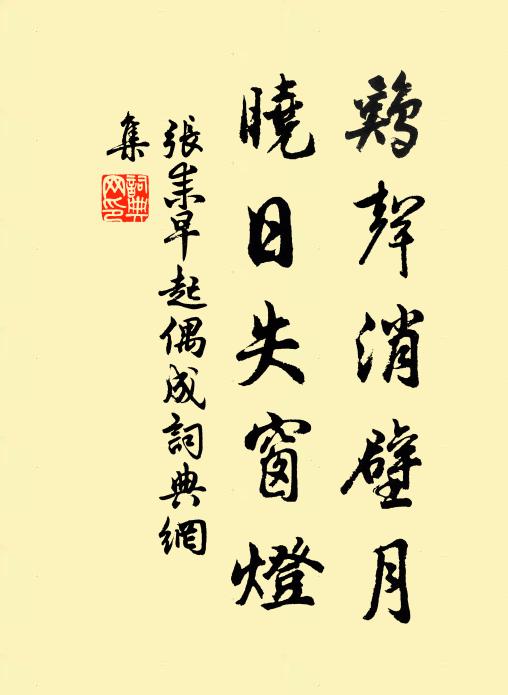 鷄聲消壁月
曉日失窗燈
張耒早起偶成詞典網
集
詞典
网印